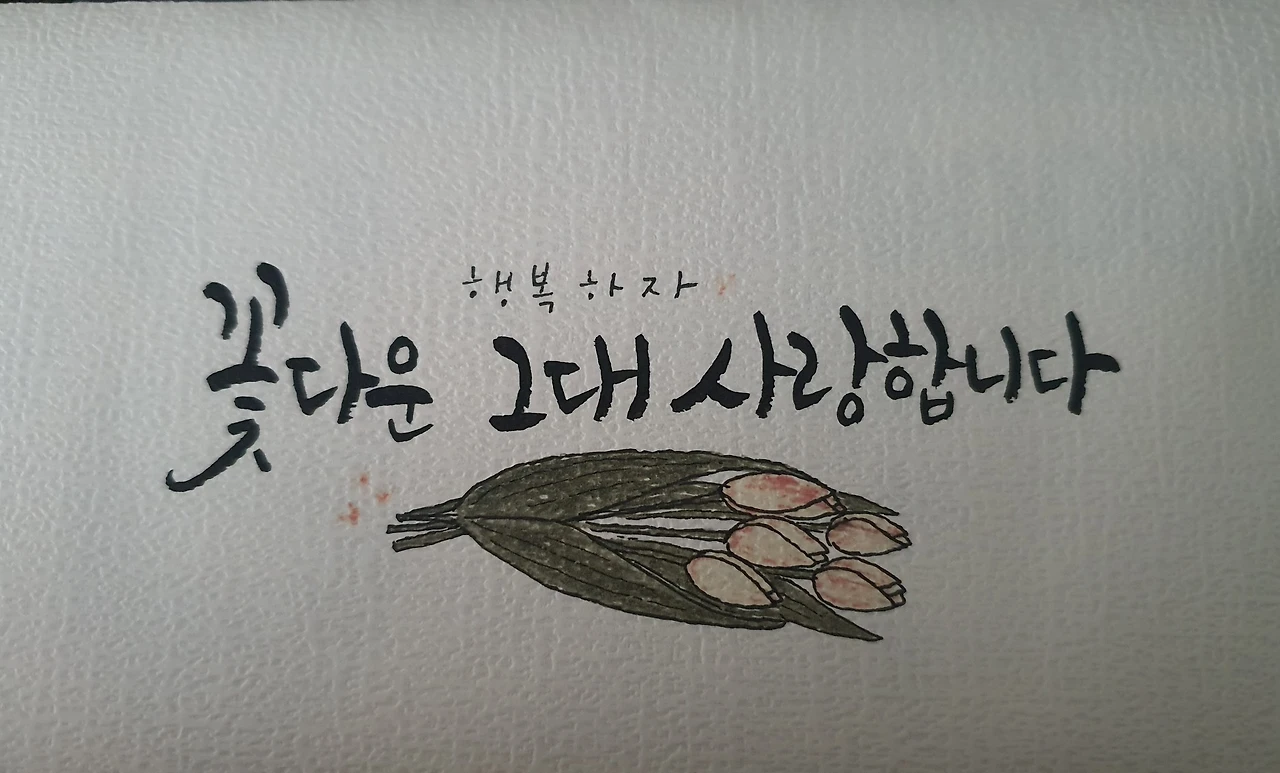 행복하자
꽃다운 그대 사랑합니다